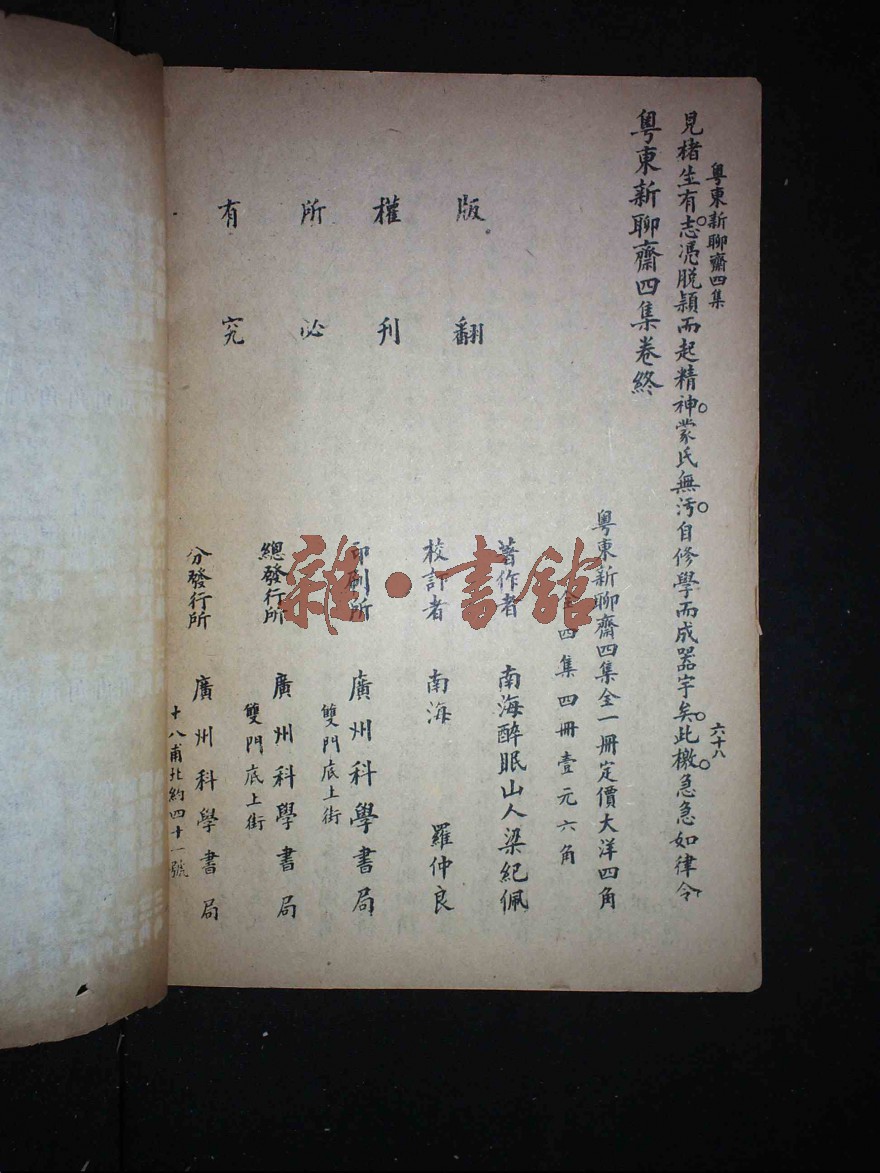 粵東新聊齋四集
六十八
見楮生有志憑脫穎而起精神蒙氏無污自修學而成器宇矣此檄急急如律令
粵東新聊齋四集卷終
版權所有
翻刊必究
粵東新聊齋四集全一冊定價大洋四角
四集四冊壹元六角
著作者 南海醉眠山人梁紀佩
校訂者 南海 羅仲良
印刷所 廣州科學書局
雙門底上街
總發行所 廣州科學書局
雙門底上街
分發行所 廣州科學書局
十八甫北約四十一號
雜·書館